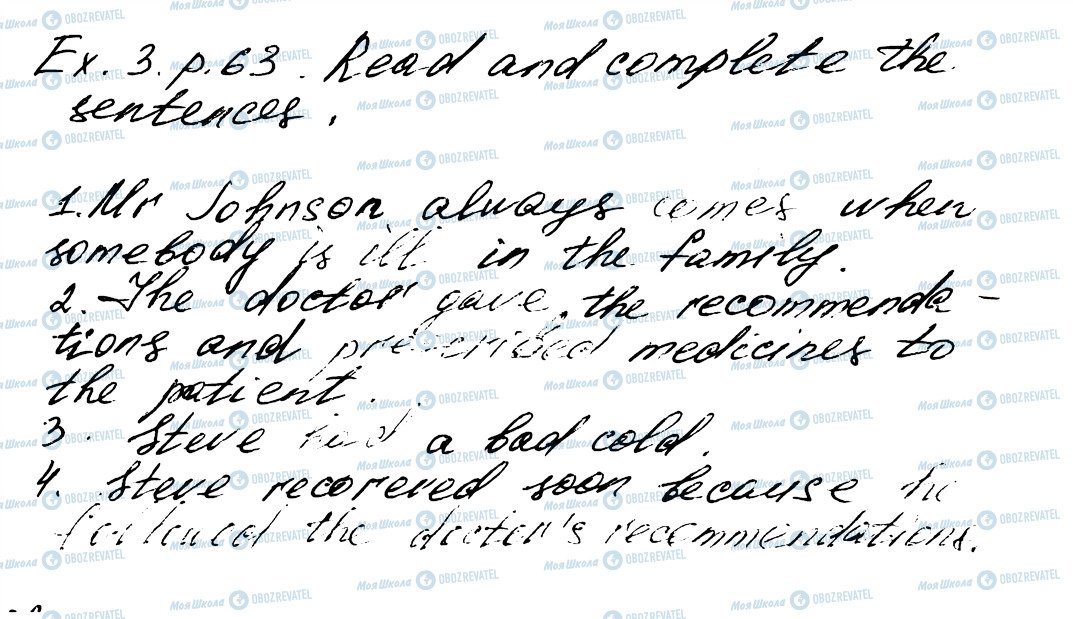 Ex. 3. p. 63. Read and complete the
sentences.
1. Mr Johnson always comes when
somebody is ill in the family.
2. The doctor gave the recommenda-
tions and prescribed medicines to
the patient.
3. Steve had a bad cold.
4. Steve recorered soon because he
followed the doctor's recommendations.
Моя Школа OBOZREVATEL